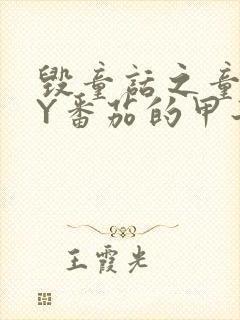 毁童话之童
Y番茄的甲
王霞光